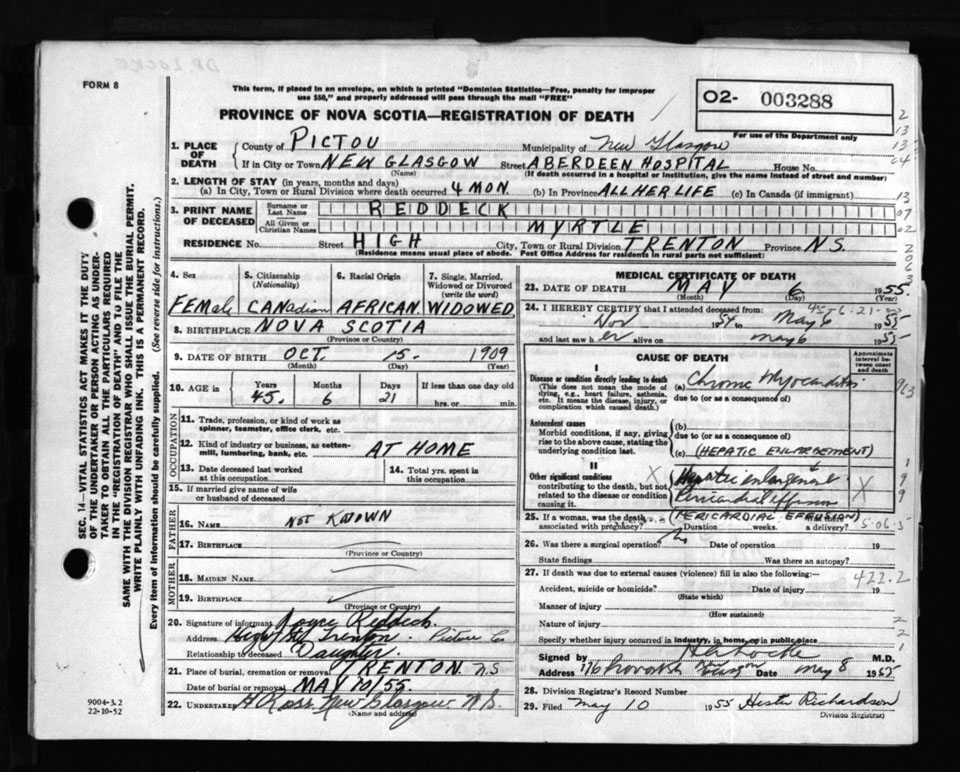 FORM 8
This form, if placed in an envelope, on which is printed "Dominion Statistics—Free, penalty for improper
use $50," and properly addressed will pass through the mail "FREE"
PROVINCE OF NOVA SCOTIA—REGISTRATION OF DEATH
O2- 003288
For use of the Department only
1. PLACE OF DEATH
County of PICTOU
Municipality of New Glasgow
If in City or Town NEW GLASGOW Street ABERDEEN HOSPITAL House No.
(Name) (If death occurred in a hospital or institution, give the name instead of street and number)
2. LENGTH OF STAY (in years, months and days)
(a) In City, Town or Rural Division where death occurred 4 MON. (b) In Province ALL HER LIFE (c) In Canada (if immigrant)
3. PRINT NAME OF DECEASED
Surname or Last Name REDDECK
All Given or Christian Names MYRTLE
RESIDENCE No. Street HIGH City, Town or Rural Division TRENTON Province N.S.
(Residence means usual place of abode. Post Office Address for residents in rural parts not sufficient)
4. Sex
FEMale
5. Citizenship
(Nationality)
CANadian
6. Racial Origin
AFRICAN
7. Single, Married, Widowed or Divorced
(write the word)
WIDOWED
8. BIRTHPLACE NOVA SCOTIA
(Province or Country)
9. DATE OF BIRTH OCT. 15. 1909
(Month) (Day) (Year)
10. AGE in
Years Months Days If less than one day old
45. 6 21 hrs. or min.
OCCUPATION
11. Trade, profession, or kind of work as spinner, teamster, office clerk, etc.
12. Kind of industry or business, as cotton-mill, lumbering, bank, etc. AT HOME
13. Date deceased last worked at this occupation
14. Total yrs. spent in this occupation
15. If married give name of wife or husband of deceased
FATHER
16. Name NOT KNOWN
17. Birthplace
(Province or Country)
MOTHER
18. Maiden Name
19. Birthplace
(Province or Country)
20. Signature of informant Joyce Reddick
Address High St Trenton - Pictou Co
Relationship to deceased Daughter
21. Place of burial, cremation or removal TRENTON N.S
Date of burial or removal MAY 10/55.
22. Undertaker H Ross. New Glasgow N.S.
(Name and address)
MEDICAL CERTIFICATE OF DEATH
23. DATE OF DEATH MAY 6 1955
(Month) (Day) (Year)
24. I HEREBY CERTIFY that I attended deceased from:
Nov 1954 to May 6 1955
and last saw her alive on May 6 1955
CAUSE OF DEATH
Approximate interval between onset and death
I
Disease or condition directly leading to death
(This does not mean the mode of dying, e.g., heart failure, asthenia, etc. It means the disease, injury, or complication which caused death.)
(a) Chronic Myocarditis
due to (or as a consequence of)
Antecedent causes
Morbid conditions, if any, giving rise to the above cause, stating the underlying condition last.
(b)
due to (or as a consequence of)
(c) (HEPATIC ENLARGEMENT)
II
Other significant conditions
contributing to the death, but not related to the disease or condition causing it.
Hepatic enlargement
Pericardial effusion
(PERICARDIAL EFFUSION)
25. If a woman, was the death associated with pregnancy? Duration weeks. a delivery?
26. Was there a surgical operation? No Date of operation 19
State findings Was there an autopsy?
27. If death was due to external causes (violence) fill in also the following:—
Accident, suicide or homicide? Date of injury 19
(State which)
Manner of injury
(How sustained)
Nature of injury
Specify whether injury occurred in industry, in home, or in public place
422.2
Signed by M.D.
Address Date May 8 1955
28. Division Registrar's Record Number
29. Filed May 10 1955 Hester Richardson
Division Registrar)
SEC. 14—VITAL STATISTICS ACT MAKES IT THE DUTY
OF THE UNDERTAKER OR PERSON ACTING AS UNDER-
TAKER TO OBTAIN ALL THE PARTICULARS REQUIRED
IN THE "REGISTRATION OF DEATH" AND TO FILE THE
SAME WITH THE DIVISION REGISTRAR WHO SHALL ISSUE THE BURIAL PERMIT.
WRITE PLAINLY WITH UNFADING INK. THIS IS A PERMANENT RECORD.
Every item of information should be carefully supplied. (See reverse side for instructions.)
9004-3.2
22-10-52